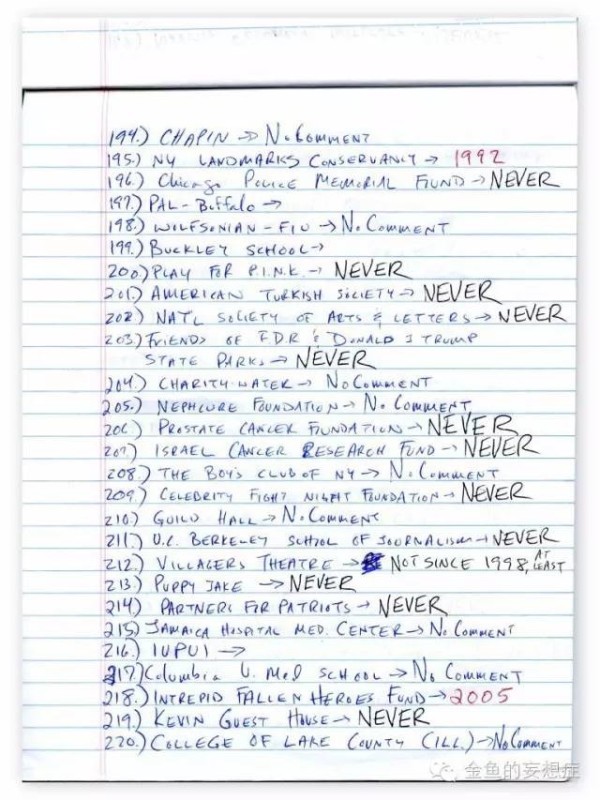 194.) CHAPIN → No Comment
195.) NY LANDMARKS CONSERVANCY → 1992
196.) Chicago POLICE MEMORIAL FUND → NEVER
197.) PAL-Buffalo →
198.) WOLFSONIAN-FIU → No Comment
199.) BUCKLEY SCHOOL →
200.) PLAY FOR P.I.N.K. → NEVER
201.) AMERICAN TURKISH SOCIETY → NEVER
202.) NAT'L SOCIETY OF ARTS & LETTERS → NEVER
203.) FRIENDS OF F.D.R & DONALD J TRUMP
STATE PARKS → NEVER
204.) CHARITY-WATER → No Comment
205.) NEPHCURE FOUNDATION → No Comment
206.) PROSTATE CANCER FOUNDATION → NEVER
207.) ISRAEL CANCER RESEARCH FUND → NEVER
208.) THE BOY'S CLUB OF NY → No Comment
209.) CELEBRITY FIGHT NIGHT FOUNDATION → NEVER
210.) GUILD HALL → No Comment
211.) U.C. BERKELEY SCHOOL OF JOURNALISM → NEVER
212.) VILLAGERS THEATRE → NOT SINCE 1998, AT LEAST
213.) PUPPY JAKE → NEVER
214.) PARTNERS FOR PATRIOTS → NEVER
215.) JAMAICA HOSPITAL MED. CENTER → No Comment
216.) IUPUI →
217.) Columbia U. Med SCHOOL → No Comment
218.) INTREPID FALLEN HEROES FUND → 2005
219.) KEVIN GUEST HOUSE → NEVER
220.) COLLEGE OF LAKE COUNTY (ILL.) → No Comment
金鱼的妄想症